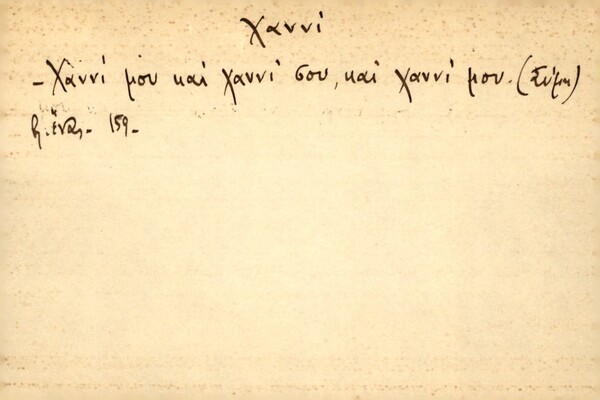 Χαννί
- Χαννί μου καί χαννί σου, καί χαννί μου. (Σύμη)
βλ. ἕνας - 159 -